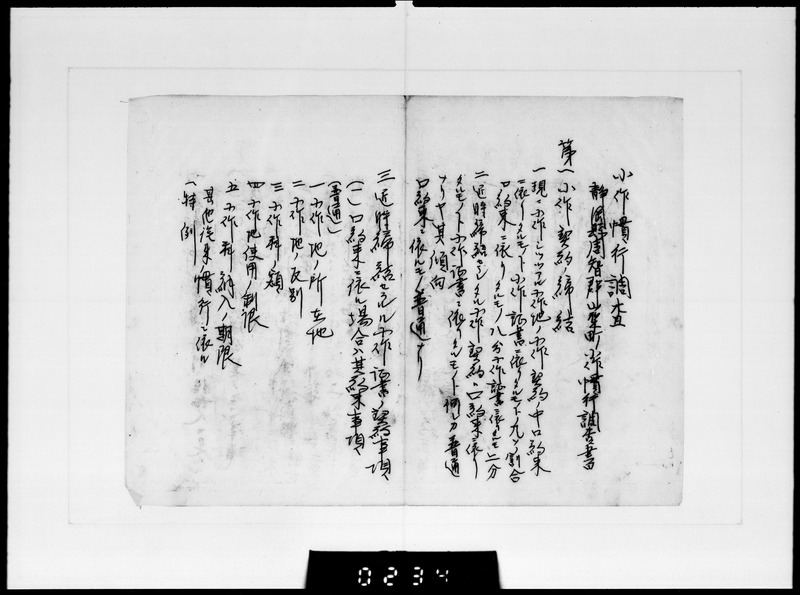 小作慣行調査
静岡縣周智郡山梨町小作慣行調査書
第一 小作契約ノ締結
一 現ニ小作シツツアル小作地ノ小作契約中口約束
ニ依リタルモノト小作証書ニ依リタルモノトノ割合
口約束ニ依リタルモノ八分小作証書ニ依リタルモノ二分
二 近時締結セラレタル小作契約ハ口約束ニ依リ
タルモノト小作証書ニ依リタルモノト何レカ普通
ナリヤ其傾向
口約束ニ依ルモノ普通ナリ
三 近時締結セラルル小作証書ノ契約事項
(一)口約束ニ依ル場合ハ其約束事項
(普通)
一 小作地ノ所在地
二 小作地ノ反別
三 小作料額
四 小作地使用ノ制限
五 小作料納入ノ期限
其他従来慣行ニ依ル
(特例)
0234